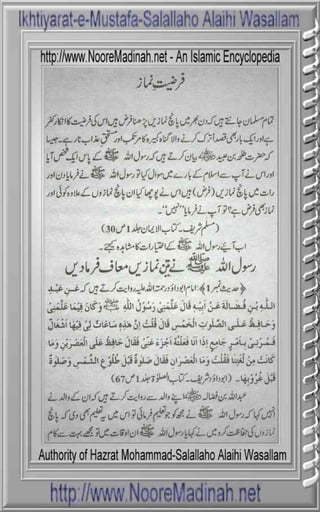 Ikhtiyarat-e-Mustafa-Salallaho Alaihi Wasallam
http://www.NooreMadinah.net - An Islamic Encyclopedia
فرضیت نماز
تمام مسلمان جانتے ہیں کہ دن بھر میں پانچ نمازیں پڑھنا فرض ہیں اس کی فرضیت کا انکار کفر
ہے اور ایک بار بھی قصداً ترک کرنے والا گناہ کبیرہ کا مرتکب اور مستحق عذاب نار ہے۔ جیسا
کہ حضرت طلحہ بن عبید ﷺ بیان کرتے ہیں کہ رسول اللہ ﷺ کے پاس ایک شخص آیا
اور اس نے آپ سے اسلام کے بارے میں سوال کیا تو رسول اللہ ﷺ نے فرمایا دن اور
رات میں پانچ نمازیں (فرض) ہیں اس نے پوچھا کیا ان پانچ نمازوں کے علاوہ کوئی اور
نماز بھی فرض ہے؟ تو آپ نے فرمایا "نہیں"۔
(مسلم شریف۔ کتاب الایمان جلد 1 ص 30)
اب آئیے رسول اللہ ﷺ کے اختیارات کا مشاہدہ کیجئے۔
رسول اللہ ﷺ نے تین نمازیں معاف فرما دیں
(حدیث نمبر 1): امام ابوداؤد رحمۃ اللہ علیہ روایت کرتے ہیں کہ عَنْ عَبْدِ
اللّٰهِ بْنِ فُضَالَةَ عَنْ اَبِيْهِ قَالَ عَلَّمَنِيْ رَسُوْلُ اللّٰهِ ﷺ وَكَانَ فِيْمَا عَلَّمَنِيْ
وَحَافِظْ عَلَى الصَّلَوَاتِ الْخَمْسِ قَالَ قُلْتُ اِنَّ هٰذِهٖ سَاعَاتٌ لِيْ فِيْهَا اَشْغَالٌ
فَمُرْنِيْ بِاَمْرٍ جَامِعٍ اِذَا اَنَا فَعَلْتُهٗ اَجْزَءَ عَنِّيْ فَقَالَ حَافِظْ عَلَى الْعَصْرَيْنِ وَمَا
كَانَتْ مِنْ لُغَتِنَا فَقُلْتُ وَمَا الْعَصْرَانِ فَقَالَ صَلٰوةٌ قَبْلَ طُلُوْعِ الشَّمْسِ وَصَلٰوةٌ
قَبْلَ غُرُوْبِهَا۔ (ابوداؤد شریف۔ کتاب الصلوٰۃ جلد 1 ص 67)
عبداللہ بن فضالہ اپنے والد سے روایت کرتے ہیں کہ ان کے والد نے
انہیں کہا کہ رسول اللہ ﷺ نے مجھ کو جو تعلیم فرمائی تو اس میں یہ تعلیم بھی دی کہ پانچ
نمازوں کی حفاظت کرو میں نے کہا یا رسول اللہ ﷺ ان اوقات میں تو مجھے بہت سے کام
Authority of Hazrat Mohammad-Salallaho Alaihi Wasallam
http://www.NooreMadinah.net